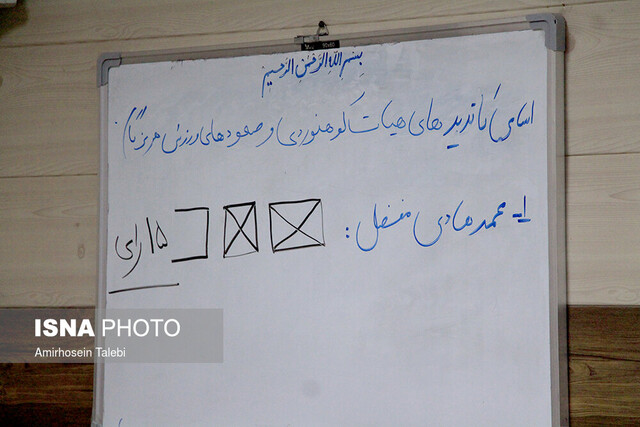 بسم الله الرحمن الرحیم
اسامی کاندیدهای هیات کوهنوردی و صعودهای ورزشی هرمزگان
1- محمد هادی مفضل : ۱۵ رای
ISNA PHOTO
Amirhosein Talebi